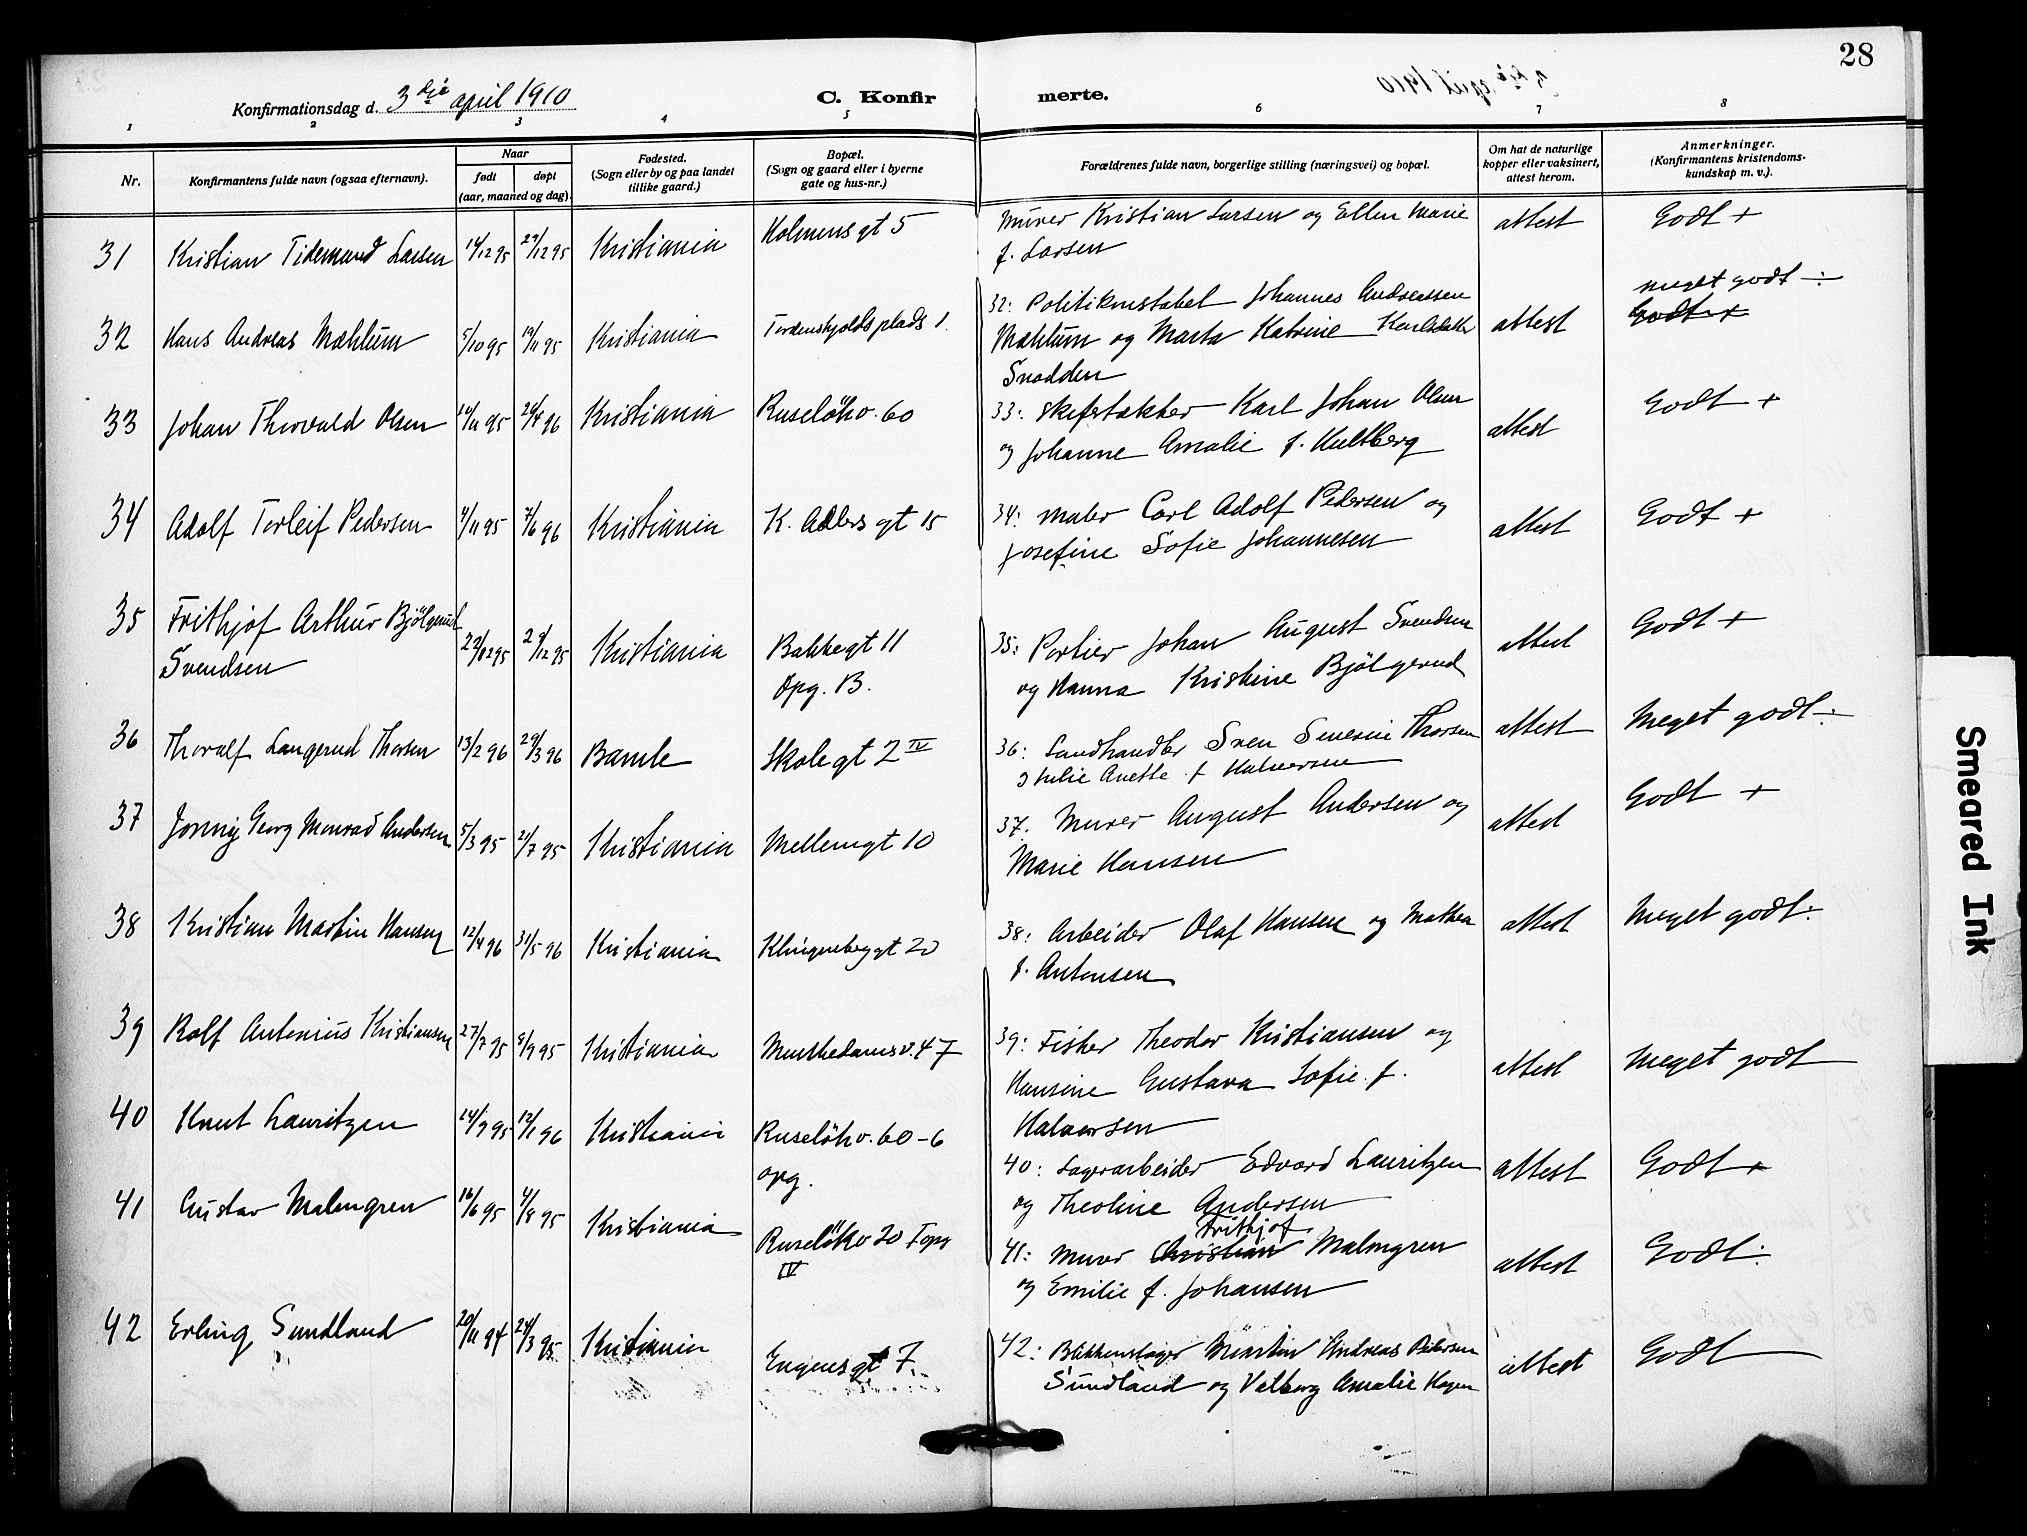 28
Konfirmationsdag d. 3die april 1910
C. Konfirmerte.
1 2 3 4 5 6 7 8
Nr.
Konfirmantens fulde navn (ogsaa efternavn).
Naar
født døpt
(aar, maaned og dag).
Fødested.
(Sogn eller by og paa landet
tillike gaard.)
Bopæl.
(Sogn og gaard eller i byerne
gate og hus-nr.)
Forældrenes fulde navn, borgerlige stilling (næringsvei) og bopæl.
Om hat de naturlige
kopper eller vaksinert,
attest herom.
Anmerkninger.
(Konfirmantens kristendoms-
kundskap m. v.).
31 Kristian Tidemand Larsen 14/12 95 29/12 95 Kristiania Holmensgt 5
Murer Kristian Larsen og Ellen Marie attest Godt +
f. Larsen
32 Hans Andreas Mæhlum 5/10 95 19/11 95 Kristiania Tordenskjolds plads 1.
32: Politikonstabel Johannes Andreassen meget godt ÷
Mæhlum og Marta Katrine Karlsdatter attest Godt +
Snodden
33 Johan Thorvald Olsen 14/11 95 26/4 96 Kristiania Ruseløkv. 60
33: Skifertækker Karl Johan Olsen attest Godt +
og Johanne Amalie f. Hultberg
34 Adolf Torleif Pedersen 4/11 95 7/6 96 Kristiania K. Adlers gt 15
34: maler Carl Adolf Pedersen og attest Godt +
Josefine Sofie Johannesen
35 Frithjof Arthur Bjölgerud
Svendsen 29/12 95 Kristiania Bakkegt 11
Opg. B.
35: Portier Johan August Svendsen attest Godt +
og Hanna Kristine Bjölgerud
36 Thoralf Langerud Thorsen 13/2 96 29/3 96 Bamle Skolegt 2 IV
36: Landhandler Sven Severin Thorsen attest Meget godt ÷
Julie Anette f Halvorsen
37 Jonny Georg Monrad Andersen 5/3 95 21/7 95 Kristiania Mellemgt 10
37. Murer August Andersen og attest Godt +
Marie Hansen
38 Kristian Martin Hansen 12/4 96 31/5 96 Kristiania Klingenberggt 20
38: Arbeider Olaf Hansen og Mathea attest Meget godt ÷
f. Antonsen
39 Rolf Antonius Kristiansen 27/7 95 8/9 95 Kristiania Munkedamsv. 47
39: Fisker Theodor Kristiansen og attest Meget godt
Hansine Gustava Sofie f.
Halvorsen
40 Knut Lauritzen 24/9 95 12/1 96 Kristiania Ruseløkv. 60-6
opg.
40: Lagerarbeider Edvard Lauritzen attest Godt +
og Theoline Andersen
41 Gustav Malmgren 16/6 95 4/8 95 Kristiania Ruseløkv 20 Fopg
IV
Frithjof
41: Murer Christian Malmgren attest Godt ÷
og Emilie f. Johansen
42 Erling Sundland 20/11 94 24/3 95 Kristiania Engensgt 7.
42: Blikkenslager Martin Andreas Pedersen attest Godt
Sundland og Valborg Amalie Hagen
Smeared Ink